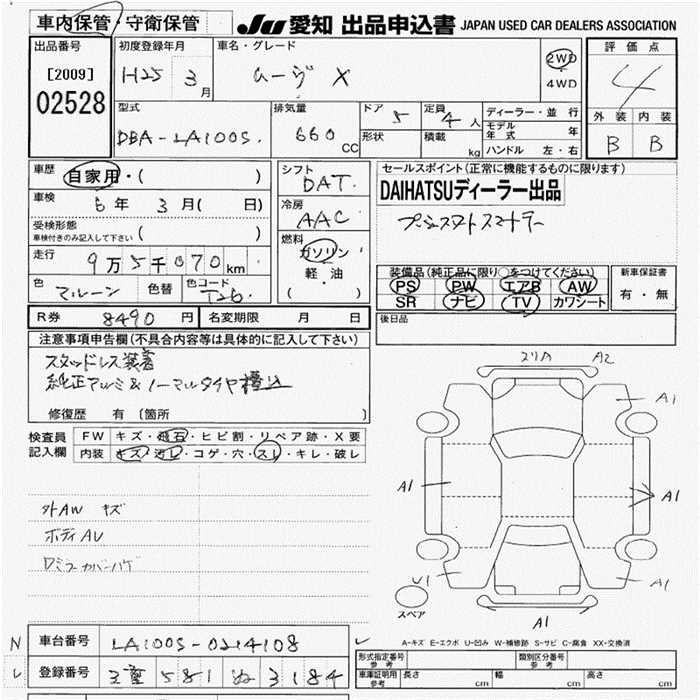 車内保管・守衛保管 JU 愛知 出品申込書 JAPAN USED CAR DEALERS ASSOCIATION
出品番号 初度登録年月 車名・グレード 評価点
[2009] H25 3月 ムーヴ X 2WD・4WD 4
02528
型式 排気量 ドア 5 定員 4人 ディーラー・並行 外装 内装
DBA-LA100S. 660CC 形状 積載 kg モデル年式 年 B B
ハンドル 左・右
車歴 自家用・( ) シフト DAT. セールスポイント(正常に機能するものに限ります)
車検 6年 3月( 日) 冷房 AAC DAIHATSUディーラー出品
受検形態 車検付きのみ記入して下さい ( ) プッシュスタートスマートキー
燃料 ガソリン 軽・油 ( )
走行 9万5千070km 装備品(純正品に限り○をつけてください) 新車保証書
色 マルーン 色替 色コード T26 PS PW エアB AW 有・無
SR ナビ TV カワシート
R券 8490円 名変期限 月 日 後日品
注意事項申告欄(不具合内容等は具体的に記入して下さい)
スタッドレス装着
純正アルミ&ノーマルタイヤ積込
修復歴 有 〔箇所
検査員記入欄 FW キズ・飛石・ヒビ割・リペア跡・X要
内装 キズ・汚レ・コゲ・穴・スレ・キレ・破レ
外AW キズ
ボディAU
ロミラーカバーハゲ
A2
A1
A1
A1
U1
A1
A1
スペア
A-キズ E-エクボ U-凹み W-補修跡 S-サビ C-腐食 XX-交換済
N 車台番号 LA100S-0214108
レ 登録番号 三重 581 ぬ 3184
形式指定番号 参考 類別区分番号 参考
車庫証明用 参考 長さ cm 幅 cm 高さ cm